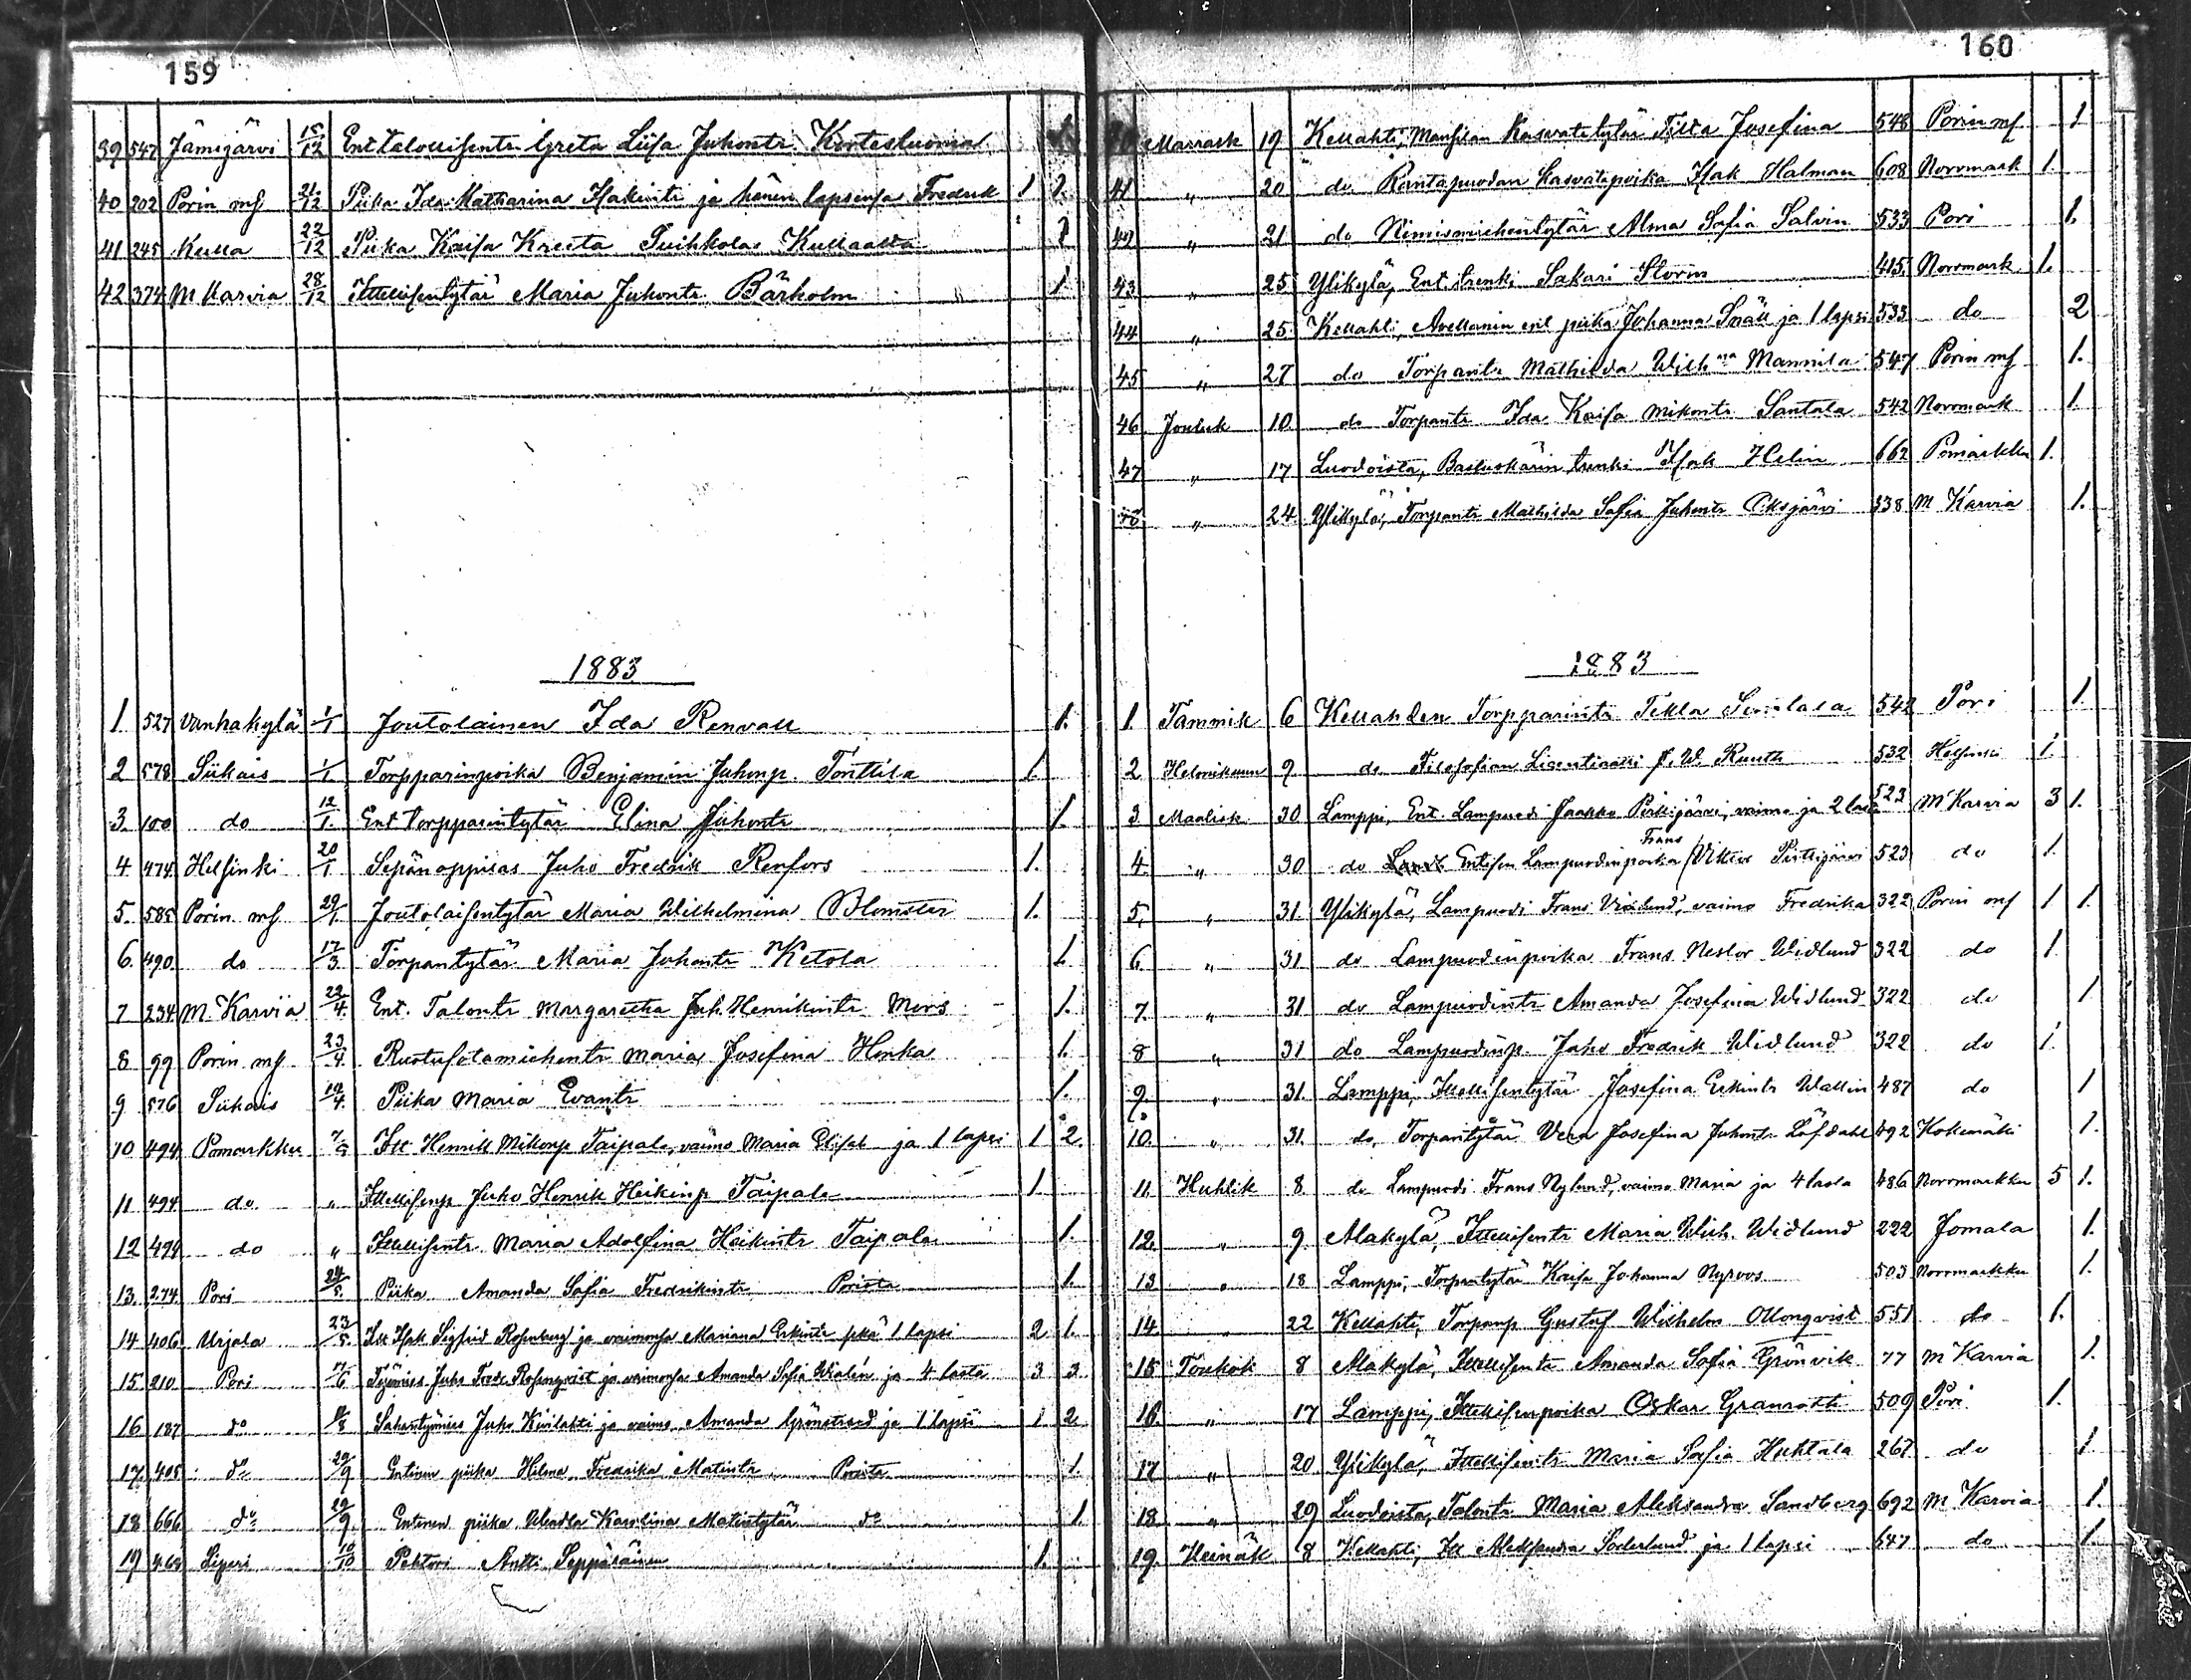 159
39 547 Jämijärvi 15/12 Ent talollisentr Greta Liisa Juhontr Kortesluoma
40 202 Porin ms 21/12 Piika Ida Matharina Isakintr ja hänen lapsensa Fredrik 1 1.
41 245 Kulla 22/12 Piika Kaisa Kreeta Kullaalta 1
42 374 M Karvia 28/12 Itsellisentytär Maria Juhontr Bärholm 1
1883
1. 527 Vanhakylä 1/1 Joutolainen Ida Renvall 1.
2 578 Siikais 1/1 Torpparinpoika Benjamin Juhonp. Tonttila 1.
3. 100 do 12/1. Ent torpparintytär Elina Juhontr 1.
4 474 Helsinki 20/1 Sepänoppilas Juho Fredrik Renfors 1.
5. 585 Porin ms 29/1. Joutolaisentytär Maria Wilhelmina Blomster 1.
6. 490 do 17/3. Torpantytär Maria Juhontr Ketola 1.
7 234 M Karvia 22/4. Ent. Talontr Margareetha Juh. Henrikintr Mors 1.
8 99 Porin ms 23/4. Rustusotamiehentr Maria Josefina Honka 1.
9 576 Siikais 19/4. Piika Maria Evantr 1.
10 494 Pomarkku 7/5 Its Henrik Mikonp Taipale, vaimo Maria Elisab ja 1 lapsi 1 2.
11 494 do. „ Itsellisenp Juho Henrik Heikinp Taipale 1.
12 494 do „ Itsellisentr Maria Adolfina Heikintr Taipale 1.
13. 274 Pori 24/5. Piika Amanda Sofia Fredrikintr Porista 1.
14 406 Urjala 23/5. Its Isak Sigfrid Rosenberg ja vaimonsa Mariana Erkintr sekä 1 lapsi 2 1.
15 210 Pori 7/6 Työmies Juho Fredr. Rosenqvist ja vaimonsa Amanda Sofia Wialén ja 4 lasta 3 3
16 187 do 8/8 Sahantyömies Juho Kivilahti ja vaimo Amanda Grönstrand ja 1 lapsi 1 2
17. 405 do 29/9 Entinen piika Hilma Fredrika Matintr Porista 1.
18 666 do 29/9. Entinen piika Karolina Matintytär do 1.
19 468 Liperi 10/10 Pehtori Antti Seppäläinen 1.
160
Marrask 19 Kellahti, Mansilan Kasvatetytär Josefina 548 Porin ms 1
41 „ 20 do Rantapuodan kasvatepoika Isak Halman 608 Norrmark 1.
42 „ 21 do Nimismiehentytär Alma Sofia Salvin 533 Pori 1.
43 „ 25 Ylikylä, Ent. trenki Sakari Storm 415 Norrmark 1.
44 „ 25. Kellahti, Avellanin ent piika Johanna Snäll ja 1 lapsi 533 do 2
45 „ 27 do Torpantr Mathilda Wilhna Mannila 547 Porin ms 1.
46 Jouluk 10 do Torpantr Ida Kaisa Mikontr Santala 542 Norrmark 1.
47 „ 17 Luodoista, Bastuskärin trenki Isak Helin 662 Pomarkku 1.
„ 24 Ylikylä, Torpantr Mathilda Sofia Juhontr 338 M Karvia 1.
1883
1. Tammik 6 Kellahden Torpparintr Tekla 542 Pori 1.
2 Helmikuun 9. do Filosofian Licentiaatti J. W. Ruuth 532 Helsinki 1.
3. Maalisk 30 Lamppi, Ent. Lampuodi Jaakko Pirttijärvi, vaimo ja 2 lasta 523 M Karvia 3 1.
Frans
4. „ 30 do Entisen Lampuodinpoika Viktor Pirttijärvi 523 do 1.
5, „ 31 Ylikylä, Lampuodi Frans Vidlund, vaimo Fredrika 322 Porin ms 1 1.
6. „ 31 do Lampuodinpoika Frans Nestor Widlund 322 do 1
7. „ 31 do Lampuodintr Amanda Josefina Widlund 322 do 1
8 „ 31 do Lampuodinp. Juho Fredrik Widlund 322 do 1.
9. „ 31. Lamppi, Itsellisentytär Josefina Erkintr Wallin 487 do 1
10. „ 31. do, Torpantytär Vera Josefina Juhontr Löfdahl 492 Kokemäki 1.
11. Huhtik 8. do Lampuodi Frans Nylund, vaimo Maria ja 4 lasta 486 Norrmarkku 5 1.
12. „ 9 Alakylä, Itsellisentr Maria Wilh. Widlund 222 Jomala 1.
13 „ 18 Lamppi, Torpantytär Kaisa Johanna Nyroos 503 Norrmarkku 1.
14. „ 22 Kellahti, Torpanp Gustaf Wilhelm Ollonqvist 551 do 1.
15 Toukok 8 Alakylä, Itsellisentr Amanda Sofia Grönvik 77 M Karvia 1.
16. „ 17 Lamppi, Itsellisenpoika Oskar Granroth 509 Pori 1.
17 „ 20 Ylikylä, Itsellisentr Maria Sofia Huhtala 267 do 1
18 „ 29 Luodoista, Talontr Maria Aleksandra Sandberg 692 M Karvia 1.
19. Heinäk 8 Kellahti, Its Aleksandra Söderlund ja 1 lapsi 547 do 1.